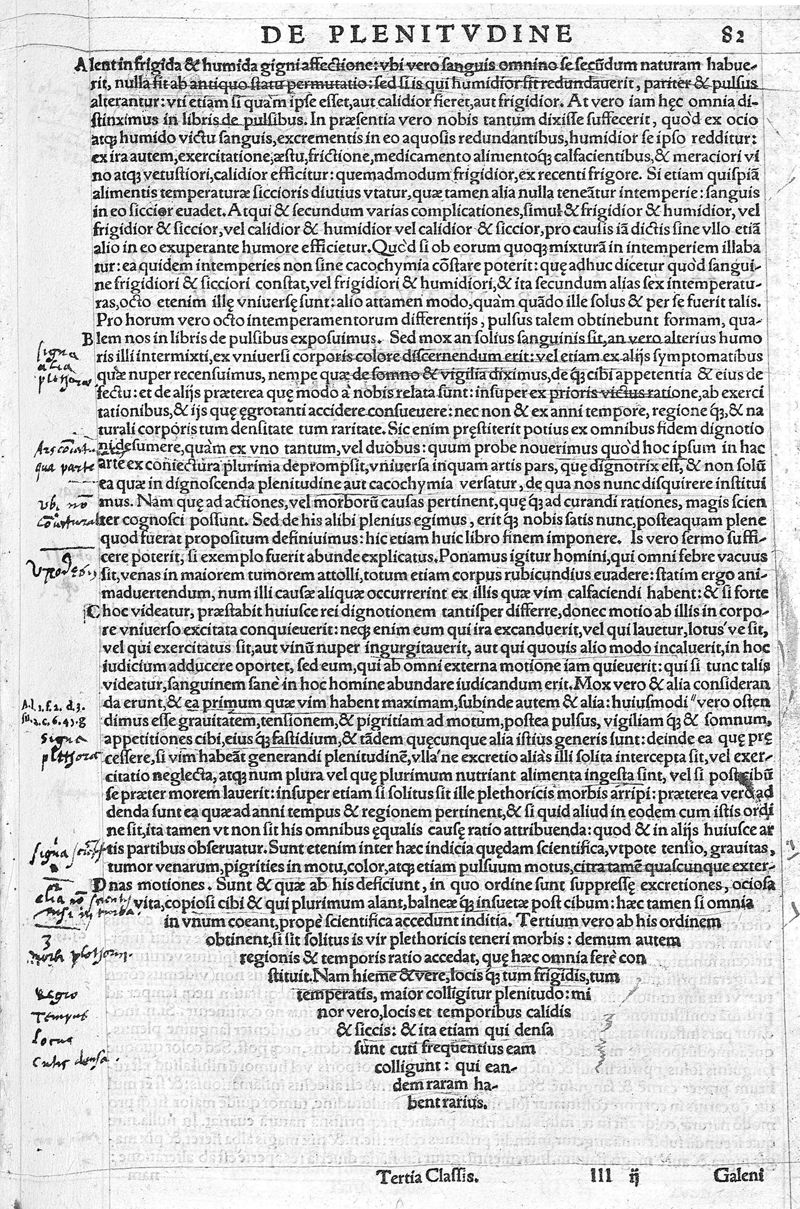 DE PLENITVDINE 82
A lent in frigida & humida gigni affectione: vbi vero sanguis omnino se secūdum naturam habue-
rit, nulla fit ab antiquo statu permutatio: sed si is qui humidior sit redundauerit, pariter & pulsus
alterantur: vti etiam si quàm ipse esset, aut calidior fieret, aut frigidior. At vero iam hęc omnia di-
stinximus in libris de pulsibus. In præsentia vero nobis tantum dixisse suffecerit, quòd ex ocio
atq; humido victu sanguis, excrementis in eo aquosis redundantibus, humidior se ipso redditur:
ex ira autem, exercitatione, æstu, frictione, medicamento alimentoq́; calfacientibus, & meraciori vi
no atq; vetustiori, calidior efficitur: quemadmodum frigidior, ex recenti frigore. Si etiam quispiā
alimentis temperaturæ siccioris diutius vtatur, quæ tamen alia nulla teneātur intemperie: sanguis
in eo siccior euadet. Atqui & secundum varias complicationes, simul & frigidior & humidior, vel
frigidior & siccior, vel calidior & humidior vel calidior & siccior, pro causis iā dictis sine vllo etiā
alio in eo exuperante humore efficietur. Quòd si ob eorum quoq; mixturā in intemperiem illaba
tur: ea quidem intemperies non sine cacochymia cōstare poterit: quę adhuc dicetur quòd sangui-
ne frigidiori & sicciori constat, vel frigidiori & humidiori, & ita secundum alias sex intemperatu-
ras, octo etenim illę vniuersę sunt: alio attamen modo, quàm quādo ille solus & per se fuerit talis.
Pro horum vero octo intemperamentorum differentijs, pulsus talem obtinebunt formam, qua-
B lem nos in libris de pulsibus exposuimus. Sed mox an solius sanguinis sit, an vero alterius humo
ris illi intermixti, ex vniuersi corporis colore discernendum erit: vel etiam ex alijs symptomatibus
quæ nuper recensuimus, nempe quæ de somno & vigilia diximus, de q́; cibi appetentia & eius de
fectu: et de alijs præterea quę modo à nobis relata sunt: insuper ex prioris victus ratione, ab exerci
tationibus, & ijs quę ęgrotanti accidere consueuere: nec non & ex anni tempore, regione q́;, & na
turali corporis tum densitate tum raritate. Sic enim pręstiterit potius ex omnibus fidem dignotio
ni desumere, quàm ex vno tantum, vel duobus: quum probe nouerimus quòd hoc ipsum in hac
arte ex coniectura plurima deprompsit, vniuersa inquam artis pars, quę dignotrix est, & non solū
ea quæ in dignoscenda plenitudine aut cacochymia versatur, de qua nos nunc disquirere institui
mus. Nam quę ad actiones, vel morborū causas pertinent, quę q́; ad curandi rationes, magis scien
ter cognosci possunt. Sed de his alibi plenius egimus, erit q́; nobis satis nunc, posteaquam plene
quod fuerat propositum definiuimus: hîc etiam huic libro finem imponere. Is vero sermo suffi-
cere poterit, si exemplo fuerit abunde explicatus. Ponamus igitur homini, qui omni febre vacuus
sit, venas in maiorem tumorem attolli, totum etiam corpus rubicundius euadere: statim ergo ani-
maduertendum, num illi causæ aliquæ occurrerint ex illis quæ vim calfaciendi habent: & si forte
C hoc videatur, præstabit huiusce rei dignotionem tantisper differre, donec motio ab illis in corpo-
re vniuerso excitata conquieuerit: neq; enim eum qui ira excanduerit, vel qui lauetur, lotus've sit,
vel qui exercitatus sit, aut vinū nuper ingurgitauerit, aut qui quouis alio modo incaluerit, in hoc
iudicium adducere oportet, sed eum, qui ab omni externa motione iam quieuerit: qui si tunc talis
videatur, sanguinem sanè in hoc homine abundare iudicandum erit. Mox vero & alia consideran
da erunt, & ea primum quæ vim habent maximam, subinde autem & alia: huiusmodi vero osten
dimus esse grauitatem, tensionem, & pigritiam ad motum, postea pulsus, vigiliam q́; & somnum,
appetitiones cibi, eius q́; fastidium, & tādem quęcunque alia istius generis sunt: deinde ea quę prę
cessere, si vim habeāt generandi plenitudinē, vlla'ne excretio aliàs illi solita intercepta sit, vel exer-
citatio neglecta, atq; num plura vel quę plurimum nutriant alimenta ingesta sint, vel si post cibū
se præter morem lauerit: insuper etiam si solitus sit ille plethoricis morbis arripi: præterea vero ad
denda sunt ea quæ ad anni tempus & regionem pertinent, & si quid aliud in eodem cum istis ordi
ne sit, ita tamen vt non sit his omnibus ęqualis causę ratio attribuenda: quod & in alijs huiusce ar
tis partibus obseruatur. Sunt etenim inter hæc indicia quędam scientifica, vtpote tensio, grauitas,
tumor venarum, pigrities in motu, color, atq; etiam pulsuum motus, citra tamē quascunque exter-
D nas motiones. Sunt & quæ ab his deficiunt, in quo ordine sunt suppressę excretiones, ociosa
vita, copiosi cibi & qui plurimum alant, balneæ q́; insuetæ post cibum: hæc tamen si omnia
in vnum coeant, propè scientifica accedunt inditia. Tertium vero ab his ordinem
obtinent, si sit solitus is vir plethoricis teneri morbis: demum autem
regionis & temporis ratio accedat, quę hæc omnia ferè con
stituit. Nam hieme & vere, locis q́; tum frigidis, tum
temperatis, maior colligitur plenitudo: mi
nor vero, locis et temporibus calidis
& siccis: & ita etiam qui densa
sunt cuti frequentius eam
colligunt: qui ean-
dem raram ha-
bent rarius.
signa
alia
pletsoras
qua parte
signa
pletsora
signa
3
morb pletsorin.
Regio
Tempus
Locus
Cutis densa.
Tertia Classis. III ij Galeni